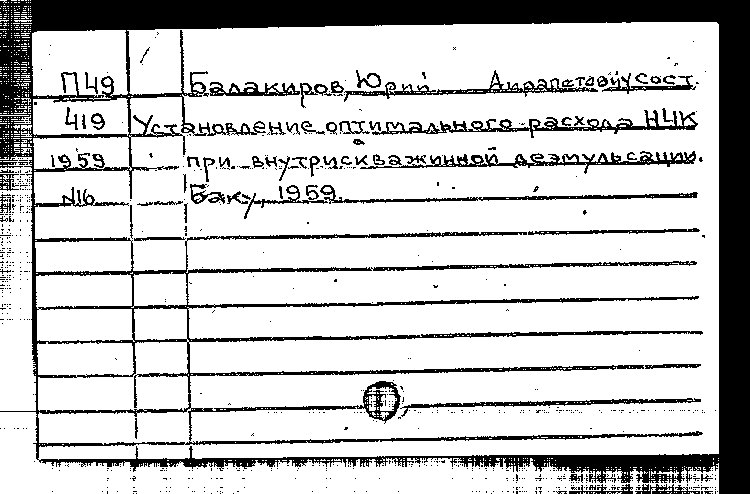 П49 Балакиров, Юрий Айрапетович, сост.
419 Установление оптимального расхода НЧК
1959 при внутрискважинной деэмульсации.
№16 Баку, 1959.